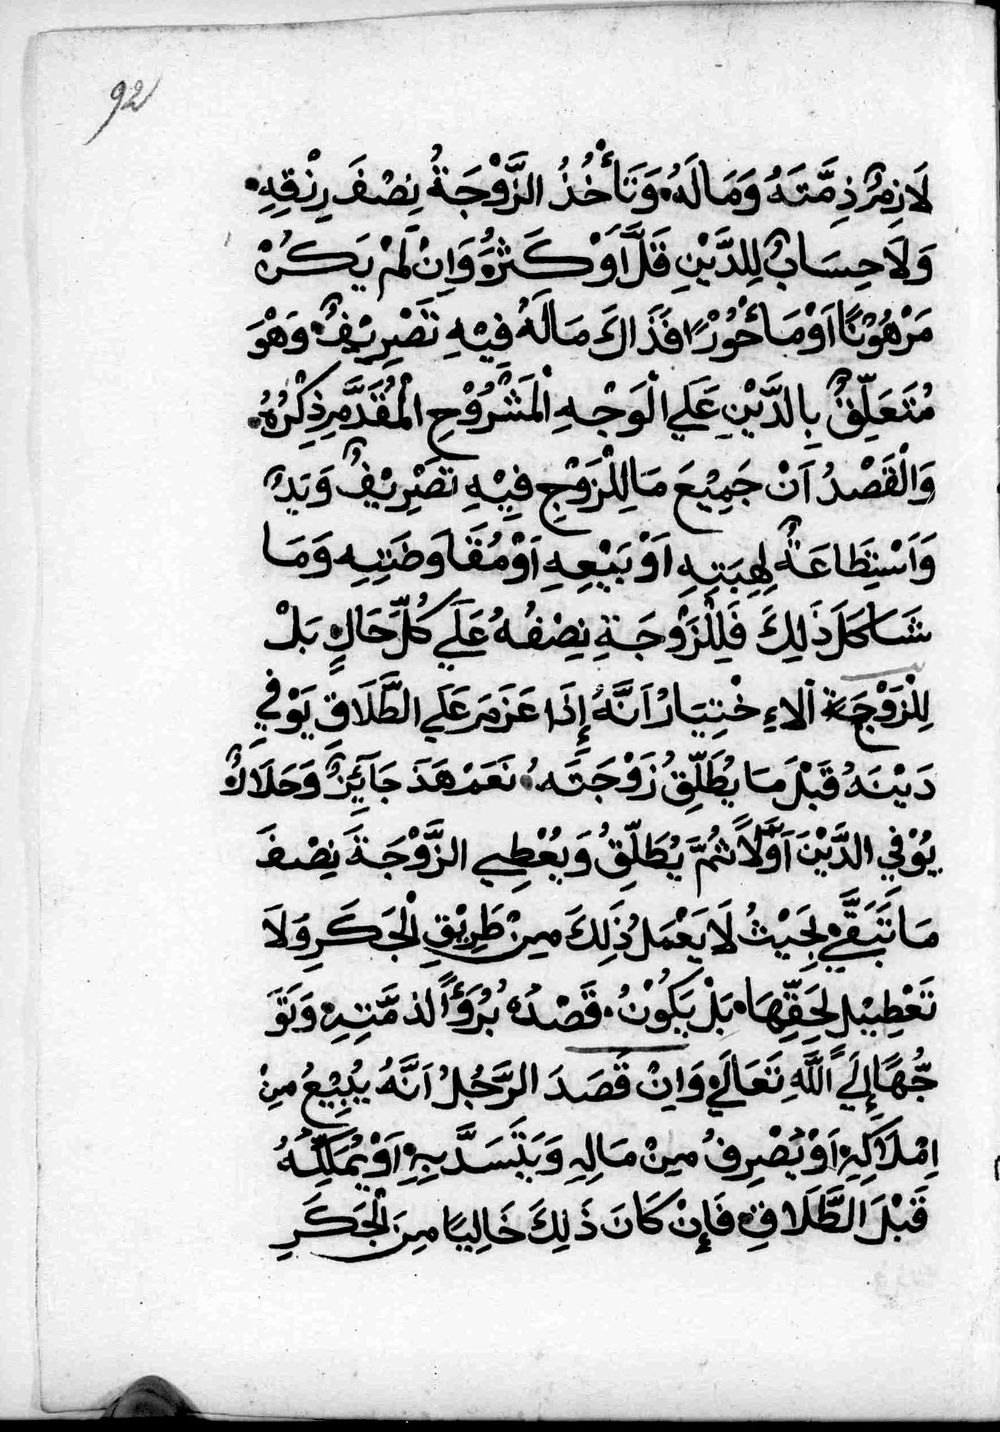 92
لَازِمٌ ذِمَّتَهُ وَمَالَهُ. وَتَأْخُذُ الزَّوْجَةُ نِصْفَ رِزْقِهِ.
وَلَا حِسَابٌ لِلدَّيْنِ قَلَّ اَوْ كَثُرَ وَاِنْ لَمْ يَكُنْ
مَرْهُوْنًا اَوْ مَأْخُوْذًا فَذَاكَ مَالَهُ فِيْهِ تَصْرِيْفٌ. وَهُوَ
مُتَعَلِّقٌ بِالدَّيْنِ عَلَي الْوَجْهِ الْمَشْرُوْحِ الْمُقَدَّمِ ذِكْرُهُ.
وَالْقَصْدُ اَنْ جَمِيْعَ مَا لِلْزَوْجِ فِيْهِ تَصْرِيْفٌ وَيَدٌ
وَاَسْتِطَاعَةٌ لِهِبَتِهِ اَوْ بَيْعِهِ اَوْ مُقَاوَضَتِهِ وَمَا
شَاكَلَ ذَلِكَ فَلِلْزَوْجَةِ نِصْفُهُ عَلَي كُلِّ حَالٍ بَلْ
لِلْزَوْجَة اَلاءِخْتِيَارُ اَنَّهُ إِذَا عَزَمَ عَلَي الطَّلَاقِ يَوْفِي
دَيْنَهُ قَبْلَ مَا يُطَلِّقُ زَوْجَتَهُ. نَعَمْ هَذَ جَآئِزٌ وَحَلَالٌ
يُوْفِي الدَّيْنَ اَوَّلًا ثُمَّ يُطَلِّقُ وَيُعْطِي الزَّوْجَةَ نِصْفَ
مَا تَبَقَّي بِحَيْثُ لَا يَعْمَلُ ذَلِكَ مِنْ طَرِيْقِ الْحَكَرِ وَلَا
تَعْطِيْلِ لِحَقِّهَا. بَلْ يَكُوْنُ. قَصْدُهُ بُرُؤًا لذمَّتِهِ وَتَوَ
جُّهًا إِلَي اللَّهِ تَعَالَي وَاِنْ قَصَدَ الرَّجُلُ اَنَّهُ يُبِيْعُ مِنْ
اِمْلَاكِهِ اَوْ يُصْرِفُ مِنْ مَالِهِ وَيَتَسَدَّ بِهِ اَوْ يُمَلِّكُهُ
قَبْلَ الطَّلَاقِ فَإِنْ كَانَ ذَلِكَ خَالِيًا مِنَ الْحَكَرِ